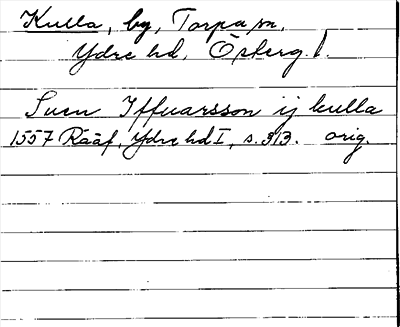 Kulla, by, Torpa sn.
Ydre hd, Österg. l.
Suen Iffuarsson ij kulla
1557 Rääf, Ydre hd I, s. 313. orig.